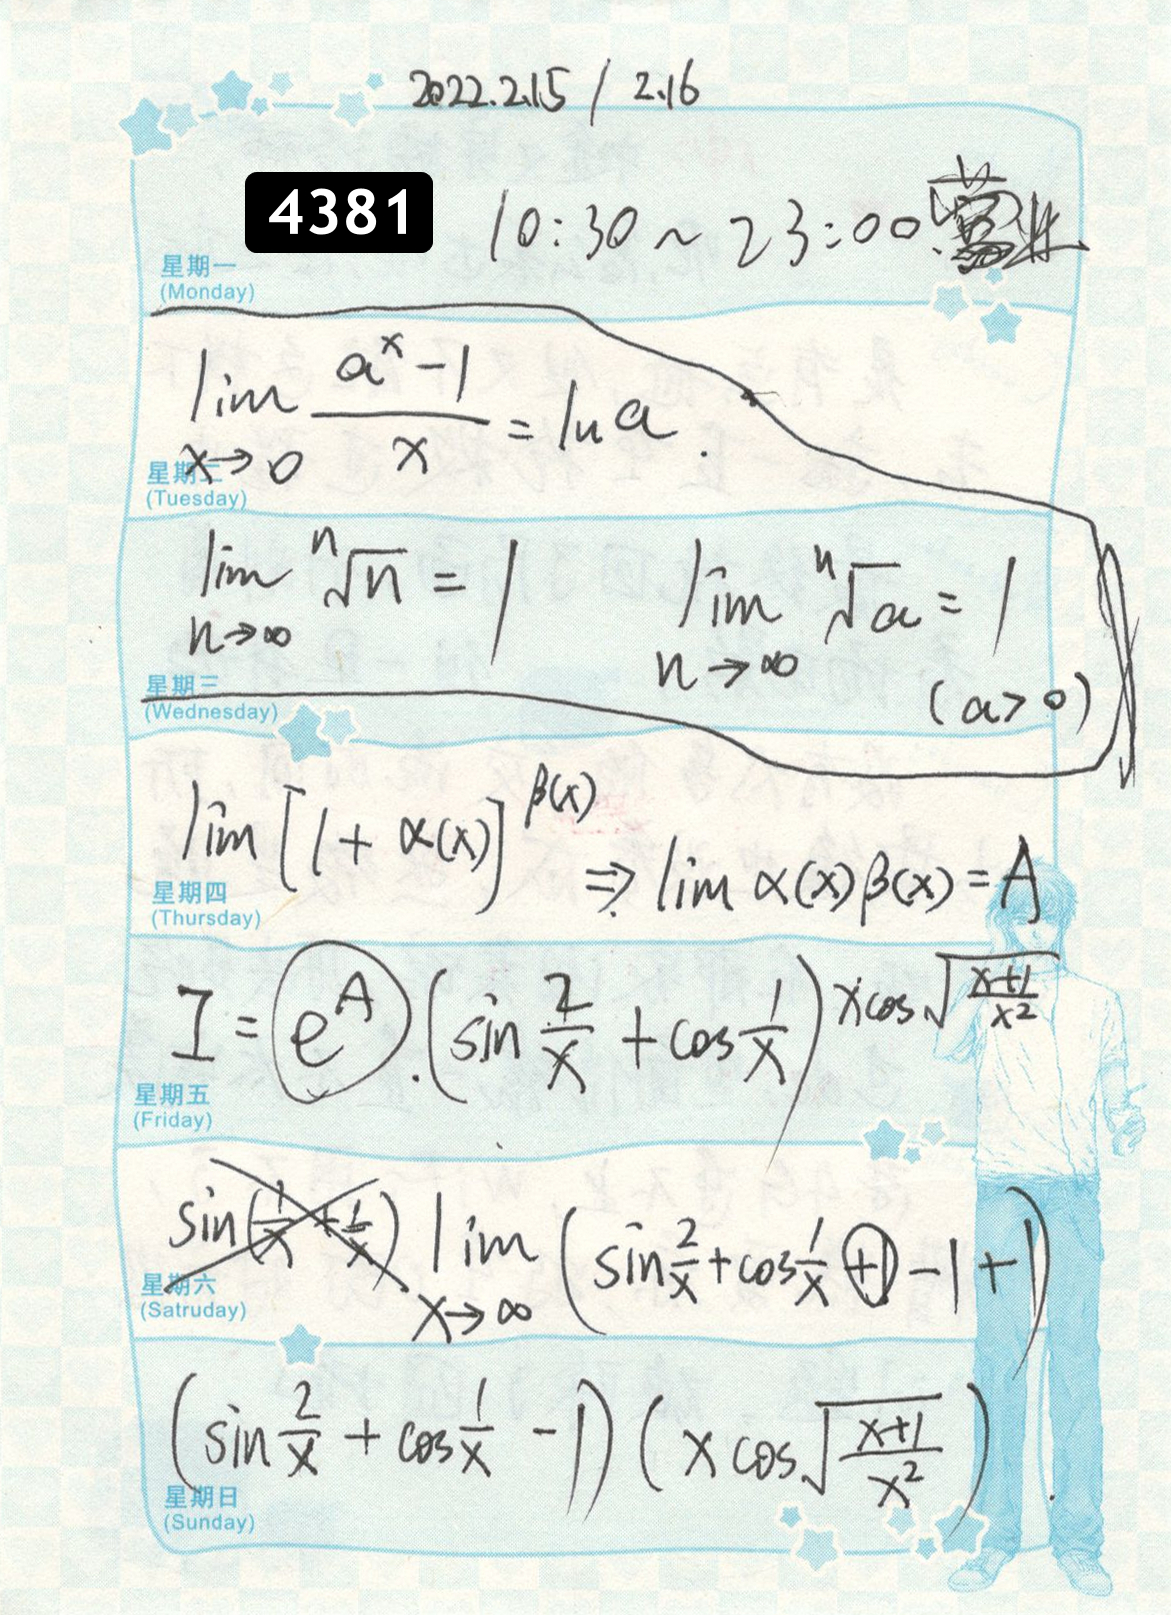 2022.2.15 / 2.16
4381
10:30 ~ 23:00
星期一
(Monday)
lim x→0 (a^x - 1)/x = ln a .
星期二
(Tuesday)
lim n→∞ ⁿ√n = 1 lim n→∞ ⁿ√a = 1
(a>0)
星期三
(Wednesday)
lim [1 + α(x)]^β(x) ⇒ lim α(x)β(x) = A
星期四
(Thursday)
I = e^A . (sin 2/x + cos 1/x)^x cos √((x+1)/x²)
星期五
(Friday)
sin(1/x + 1/x) lim x→∞ (sin 2/x + cos 1/x +1 - 1 + 1)
星期六
(Satruday)
(sin 2/x + cos 1/x - 1) (x cos √((x+1)/x²)) .
星期日
(Sunday)